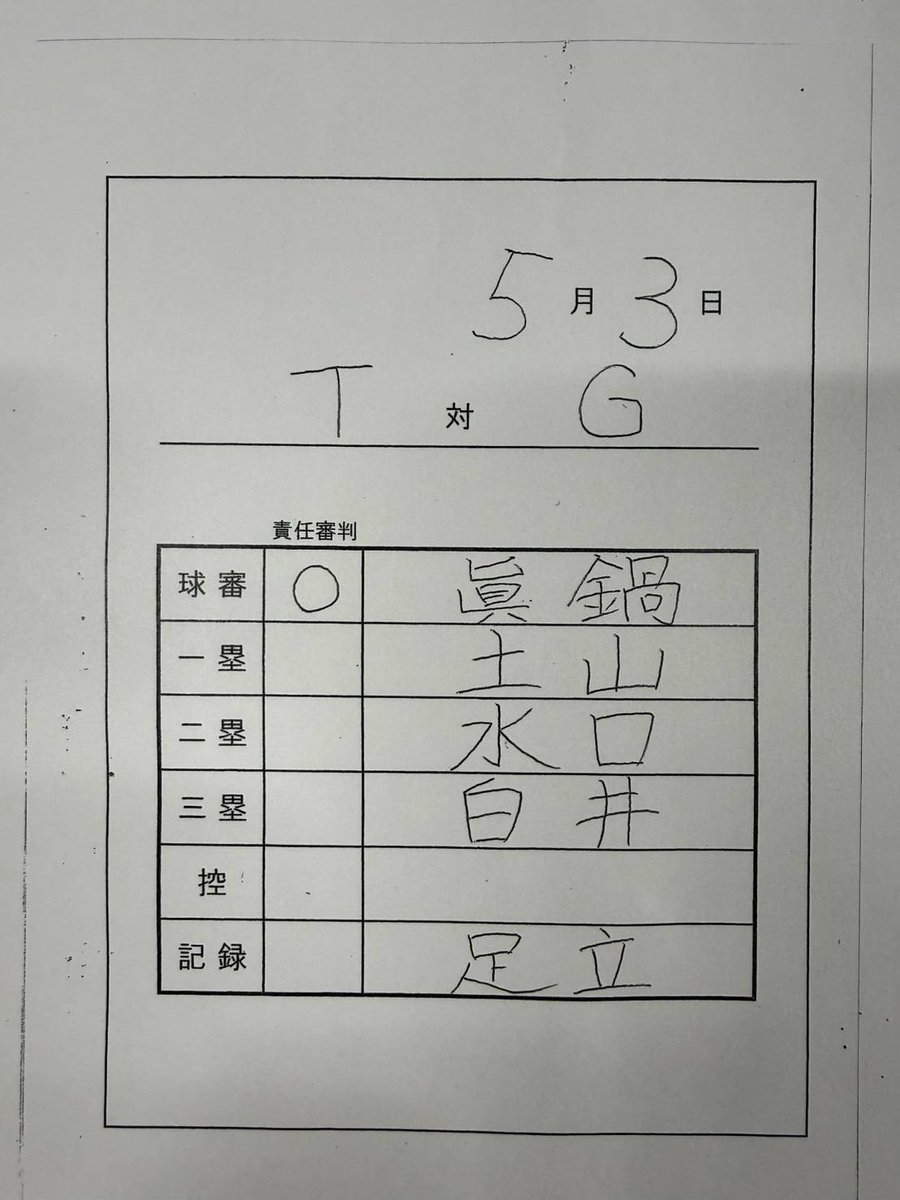 5月3日
T 対 G
責任審判
球審 ○ 眞鍋
一塁 土山
二塁 水口
三塁 白井
控
記録 足立